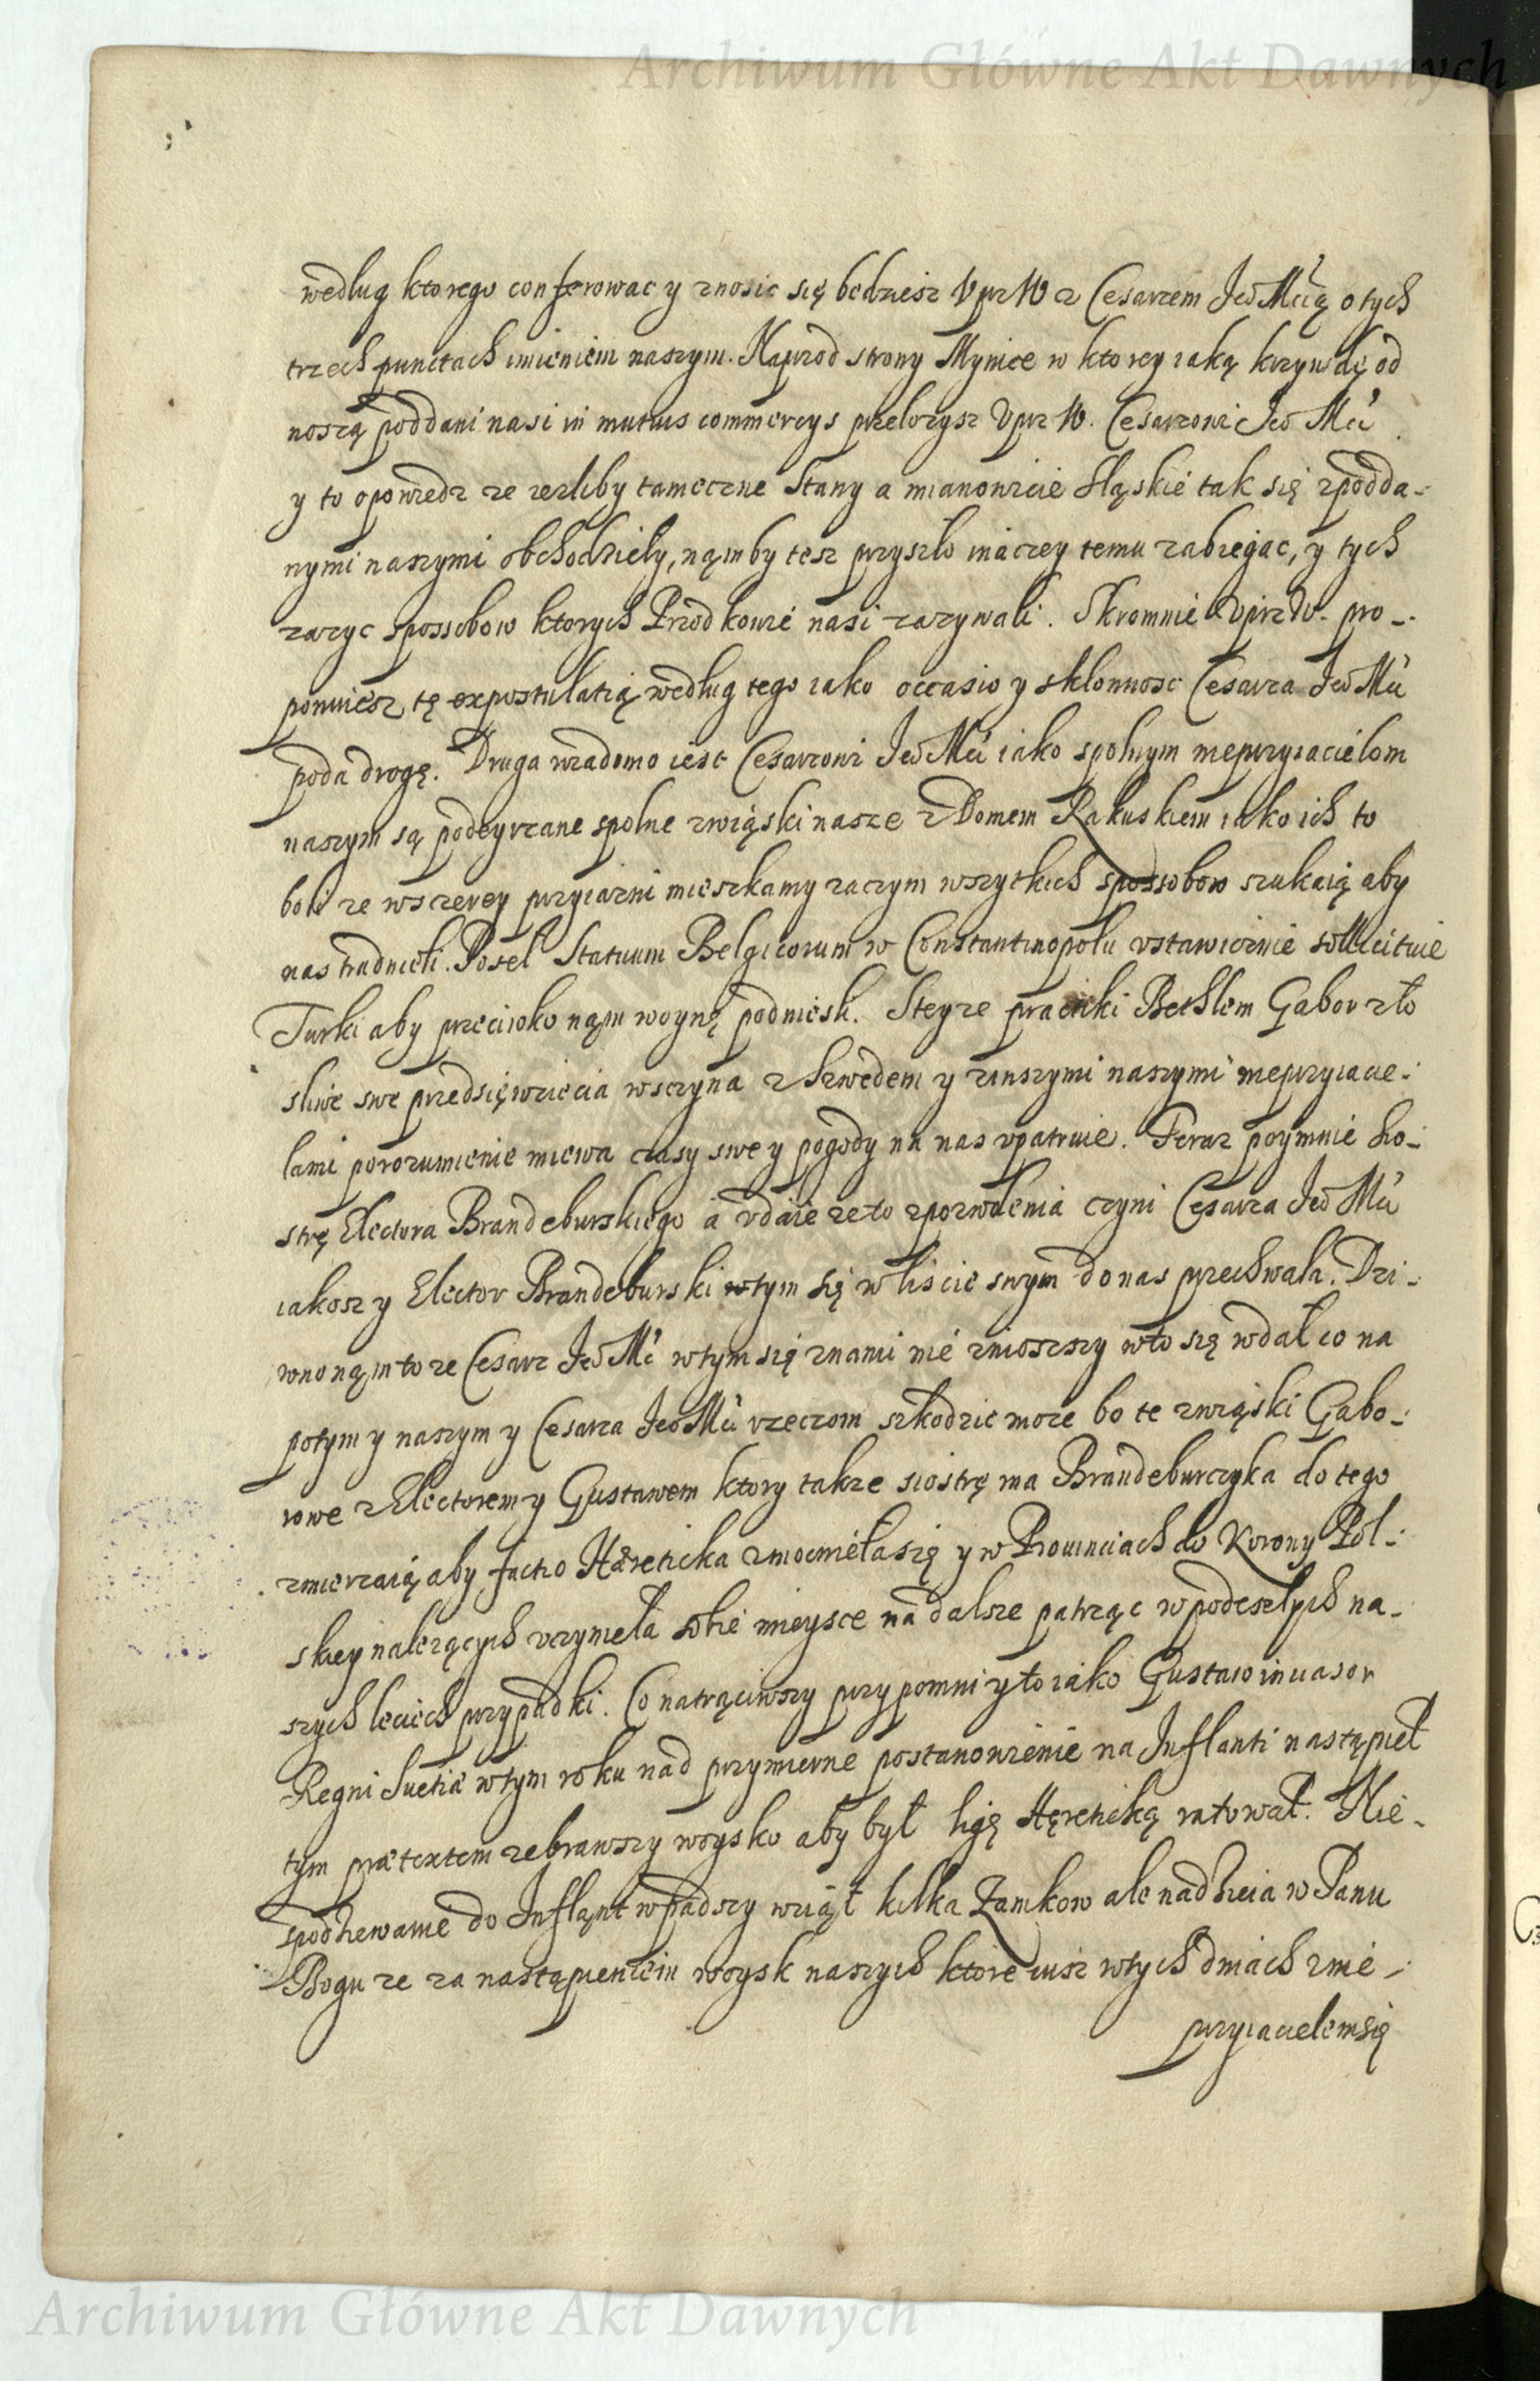 Archiwum Główne Akt Dawnych
według ktorego conferowac y znosic się bedziesz Vprz W z Cesarzem Jeo Mcią o tych
trzech punctach imieniem naszym. Naprzod strony Mynice w ktorey iaką krzywdę od
noszą poddani nasi in mutuis commercys przelozysz Vprz W. Cesarzowi Jeo Mci
y to opowiedz ze iezliby tameczne Stany a mianowicie Sląskie tak się zpodda-
nymi naszymi obchodzieły, nąm by tesz przyszło inaczey temu zabiegac, y tych
zazyc sposobow ktorych Przodkowie nasi zazywali. Skromnie Vprz W. pro-
ponuiesz tę expostulatią według tego iako occasio y skłonnosc Cesarza Jeo Mci
poda drogę. Druga wiadomo iest Cesarzowi Jeo Mci iako spolnym nieprzyiacielom
naszym są podeyrzane spolne związki nasze z Domem Rakuskiem iako ich to
boli ze wszczerey przyiazni mieszkamy zaczym wszytkich sposobow szukaią aby
nas zradnieli. Poseł Statuum Belgicorum w Constantinopolu vstawicznie sollicituie
Turki aby przeciwko nąm woynę podniesli. Steyze practiki Bethlem Gabor zło
sliwe swe przedsięwziecia wsczyna z Szwedem y zinszymi naszymi nieprzyiacie-
lami porozumienie miewa czasy swe y pogody na nas vpatruie. Teraz poymuie Sio-
strę Electora Brandeburskiego a vdaie ze to zpozwolenia czyni Cesarza Jeo Mci
iakosz y Elector Brandeburski wtym się w liscie swym do nas przechwala. Dzi-
wno nąm to ze Cesarz Jeo Mć wtym się znami nie znioszszy wto się wdał co na
potym y naszym y Cesarza Jeo Mci rzeczom szkodzic moze bo te związki Gabo-
rowe z Electorem y Gustawem ktory takze siostrę ma Brandeburczyka do tego
zmierzaią aby factio Hæreticka zmocnieła się y w Prouinciach do Korony Pol-
skiey nalezących vczynieła sobie mieysce na dalsze patrząc w podeszłych na-
szych leciech przypadki. Co natrąciwszy przypomni y to iako Gustaw inuasor
Regni Suetiæ wtym roku nad przymierne postanowienie na Inflanti nastąpieł
tym prætextem zebrawszy woysko aby był ligę Hæreticką ratował. Nie-
spodziewanie do Inflant wpadszy wziął kilka Zamkow ale nadzieia w Panu
Bogu ze za nastąpieniem woysk naszych ktore iusz wtych dniach znie-
przyiacielem się
Archiwum Główne Akt Dawnych